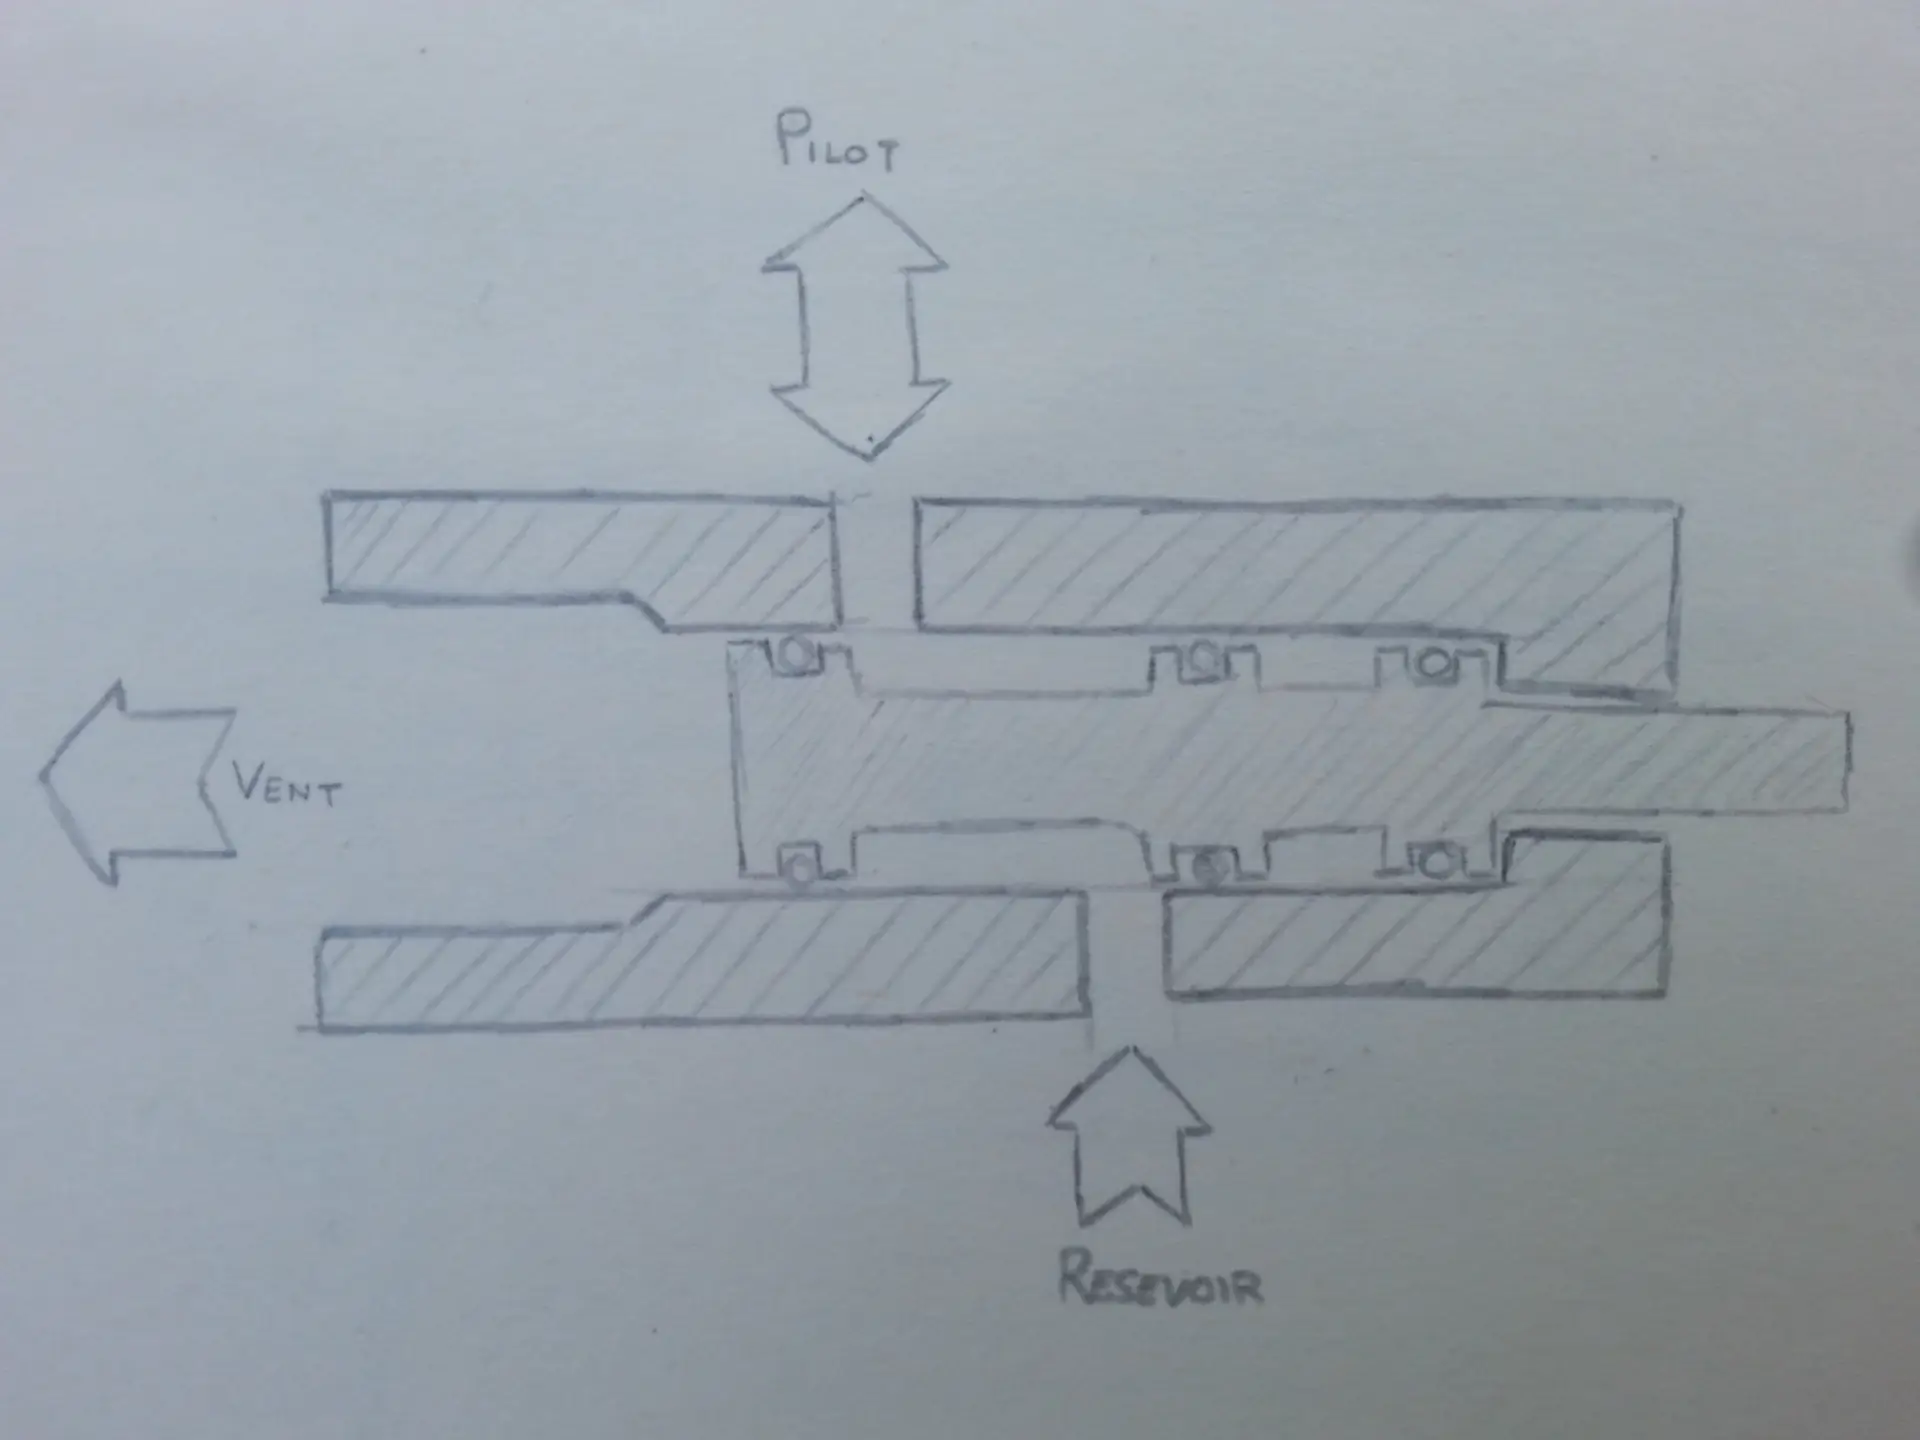 PILOT
VENT
RESEVOIR